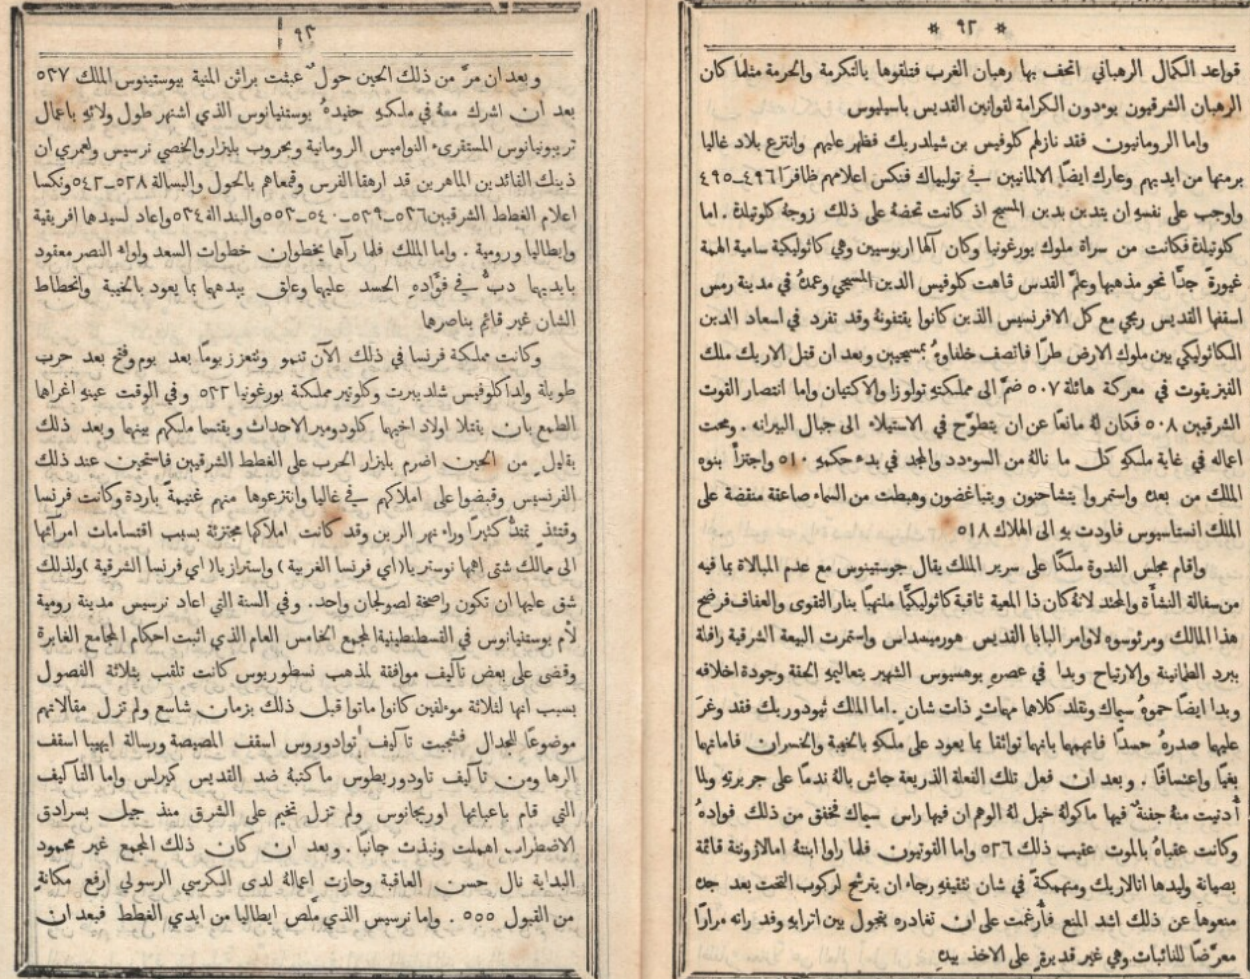 * ٩٢ *
قواعد الكمال الرهباني اتحف بها رهبان الغرب فتلقوها بالتكرمة والحرمة مثلما كان
الرهبان الشرقيون يوءدون الكرامة لقوانين القديس باسيليوس
واما الرومانيون فقد نازلهم كلوفيس بن شيلدريك فظهر عليهم وانتزع بلاد غاليا
برمتها من ايديهم وعارك ايضًا الالمانيين في تولبياك فنكس اعلامهم ظافرًا ٤٩٦_٤٩٥
واوجب على نفسهِ ان يتدين بدين المسيح اذ كانت تحضهُ على ذلك زوجهُ كلوتيلدة . اما
كلوتيلدة فكانت من سراة ملوك بورغونيا وكان آلها اريوسيين وهي كاثوليكية سامية الهمة
غيورةً جدًّا نحو مذهبها وعلمَّ القدس قاهت كلوفيس الدين المسيحي وعمدهُ في مدينة رمس
اسقفها القديس ريمجي مع كل الافرنسيس الذين كانوا يقتفونهُ وقد تفرد في اسعاد الدين
الكاثوليكي بين ملوك الارض طرًّا فاتصف خلفاوءُه بمسيحيين وبعد ان قتل الاريك ملك
الفيزيقوت في معركة هائلة ٥٠٧ ضمَّ الى مملكتهِ تولوزا والاكتيان واما انتصار القوت
الشرقيين ٥٠٨ فكان لهُ مانعًا عن ان يتطوّح في الاستيلاء الى جبال البيرانه . ومحت
اعماله في غاية ملكهِ كل ما نالهُ من السوءدد والمجد في بدء حكمهِ ٥١٠ واجتزأ بنوه
الملك من بعده واستمروا يتشاحنون ويتباغضون وهبطت من السماء صاعقة منقضة على
الملك انستاسيوس فاودت بهِ الى الهلاك ٥١٨
واقام مجلس الندوة ملكًا على سرير الملك يقال جوستينوس مع عدم المبالاة بما فيه
من سفالة النشأة والمحتد لانهُ كان ذا المعية ثاقبة كاثوليكيًّا ملتهبًا بنار التقوى والعفاف فرضخ
هذا المالك ومرئوسوه لاوامر البابا القديس هورميسداس واستمرت البيعة الشرقية رافلة
ببرد الطمانينة والارتياح وبدا في عصرهِ بوهسيوس الشهير بتعاليمهِ الحقة وجودة اخلاقه
وبدا ايضًا حموهُ سيماك وتقلد كلاهما مهماتٍ ذات شان. اما الملك ثيودوريك فقد وغرَ
عليهما صدرهُ حسدًا فاتهمهما بانهما تواثقا بما يعود على ملكهِ بالخيبة والخسران فاماتهما
بغيًا واعتسافًا . وبعد ان فعل تلك الفعلة الذريعة جاش بالهُ ندمًا على جريرتهِ ولما
أُدنيت منهُ جفنةٌ فيها ماكولهُ خيل لهُ الوهم ان فيها راس سيماك فخفق من ذلك فوادهُ
وكانت عقباهُ بالموت عقيب ذلك ٥٢٦ واما القوتيون فلما راوا ابنتهُ امالازونتة قائمة
بصيانة وليدها اتالاريك ومنهمكةً في شان تثقيفهِ رجاء ان يترشح لركوب التخت بعد جده
منعوها عن ذلك اشد المنع فأُرغمت على ان تغادره يتجول بين اترابهِ وقد راته مرارًا
معرّضًا للنائبات وهي غير قديرةٍ على الاخذ بيدهِ
٩٣
وبعد ان مرَّ من ذلك الحين حولٌ عبثت براثن المنية بيوستينوس الملك ٥٢٧
بعد ان اشرك معهُ في ملكهِ حفيدهُ يوستنيانوس الذي اشتهر طول ولائهِ باعمال
تريبونيانوس المستقرىء النواميس الرومانية وبحروب بليزار والخصي نرسيس ولعمري ان
ذينك القائدين الماهرين قد ارهقا الفرس وقمعاهم بالحول والبسالة ٥٢٨_٥٤٢ ونكسا
اعلام الغطط الشرقيين ٥٣٦_٥٣٩_٥٤٠_٥٥٢ والبندالة ٥٣٤ واعاد لسيدها افريقية
وايطاليا ورومية . واما الملك فلما رآهما يخطوان خطوات السعد ولواء النصر معقود
بايديهما دبَّ في فوَّادهِ الحسد عليهما وعلق يبدهها بما يعود بالخيبة وانحطاط
الشان غير قائمٍ بناصرها
وكانت مملكة فرنسا في ذلك الآن تنمو وتتعزز يومًا بعد يوم وفتح بعد حرب
طويلة ولدا كلوفيس شلديبرت وكلوتير مملكة بورغونيا ٥٢٢ وفي الوقت عينهِ اغراهما
الطمع بان يقتلا اولاد اخيهما كلودومير الاحداث ويقتسما ملكهم بينهما وبعد ذلك
بقليلٍ من الحين اضرم بليزار الحرب على الغطط الشرقيين فاستحين عند ذلك
الفرنسيس وقبضوا على املاكهم في غاليا وانتزعوها منهم غنيمةً باردة وكانت فرنسا
وقتئذٍ تمتدُّ كثيرًا وراء نهر الرين وقد كانت املاكها مجتزئة بسبب اقتسامات امرآئها
الى ممالك شتى اهمها نوستريا (اي فرنسا الغربية) واسترازيا (اي فرنسا الشرقية) ولذلك
شق عليها ان تكون راضخة لصولجان واحد. وفي السنة التي اعاد نرسيس مدينة رومية
لأم يوستنيانوس في القسطنطينية المجمع الخامس العام الذي اثبت احكام المجامع الغابرة
وقضى على بعض تآكيف موافقة لمذهب نسطوريوس كانت تلقب بثلاثة الفصول
بسبب انها لثلاثة موءلفين كانوا ماتوا قبل ذلك بزمان شاسع ولم تزل مقالاتهم
موضوعًا للجدال فشجبت تآكيف توادوروس اسقف المصيصة ورسالة ايهيبا اسقف
الرها ومن تآكيف تاودوريطوس ما كتبهُ ضد القديس كيرلس واما التآكيف
التي قام باعبائها اوريجانوس ولم تزل تخيم على الشرق منذ جيل بسرادق
الاضطراب اهملت ونبذت جانبًا . وبعد ان كان ذلك المجمع غير محمود
البداية نال حسن العاقبة وحازت اعمالهُ لدى الكرسي الرسولي ارفع مكانةٍ
من القبول ٥٥٥ . واما نرسيس الذي ملّص ايطاليا من ايدي الغطط فبعد ان